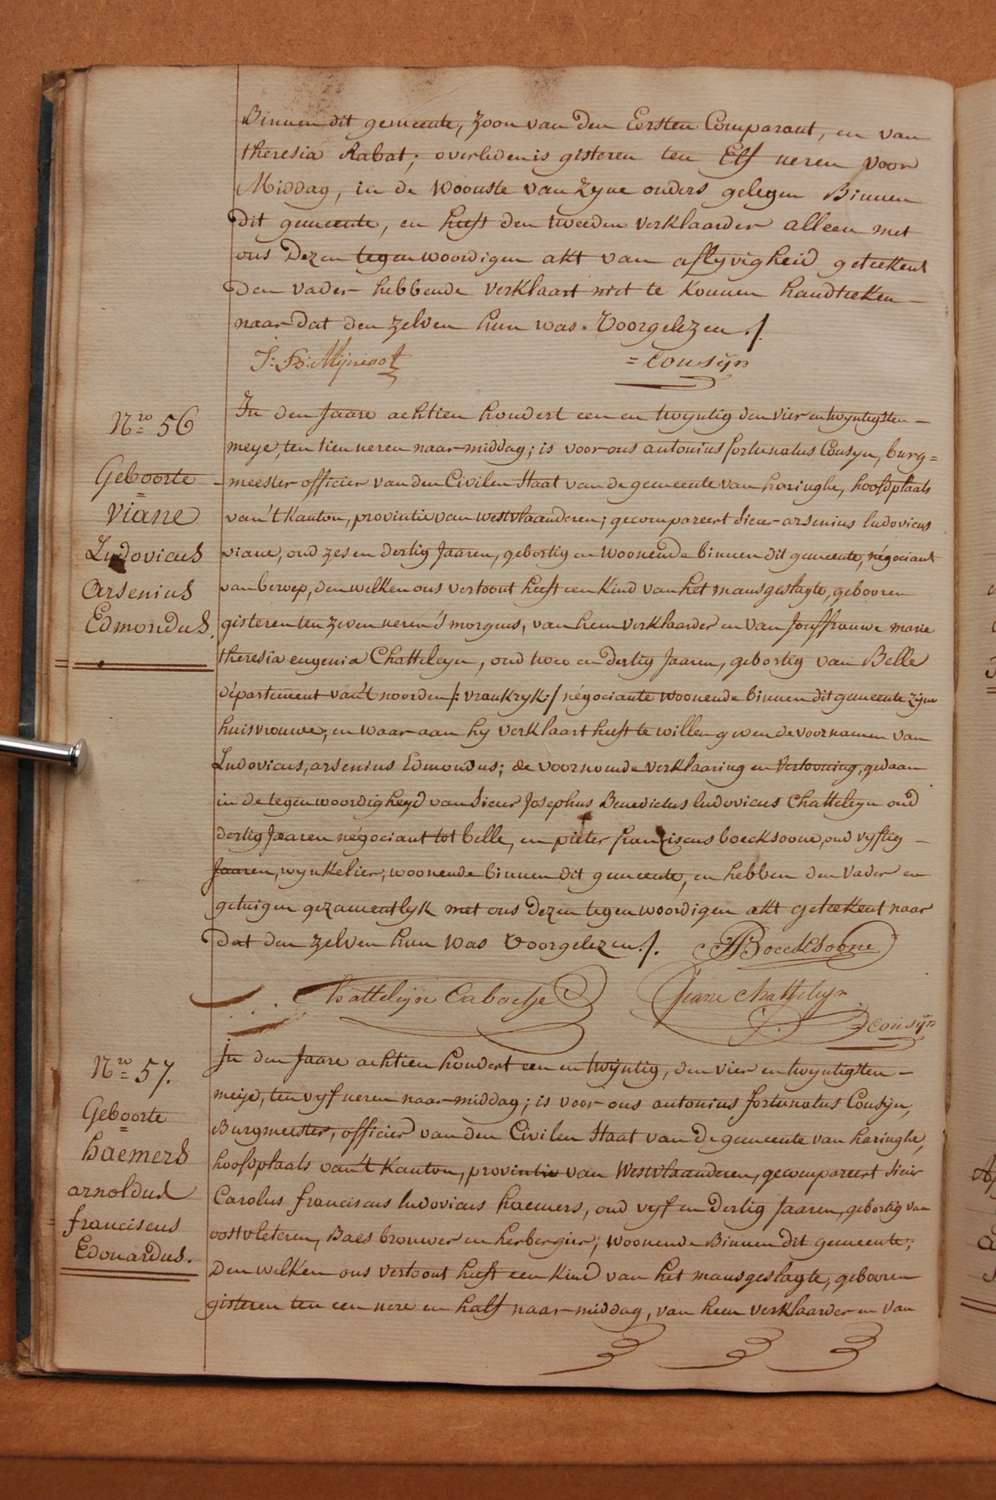 Binnen dit gemeente, zoon van den Eersten Comparant, en van
theresia Rabat; overleden is gisteren ten Elf ueren voor
Middag, in de Woonste van Zyne ouders gelegen Binnen
dit gemeente, en heeft den tweeden verklaarder alleen met
ons Dezen tegenwoordigen akt van aflyvigheid geteekent
den vader hebbende verklaart niet te konnen handteeken
naar dat den zelven hun was voorgelezen ./.
J: B: Mijneoot
= Cousÿn
Nro 56
Geboorte
=
Viane
Ludovicus
Arsenius
Edmondus.
In den Jaare achtien hondert een en twyntig den vier en twyntigsten
meye, ten tien ueren naar middag; is voor ons antonius fortunatus Cousyn, burg=
meester officier van den Civilen Staat van de gemeente van haringhe, hoofdplaats
van't Kanton, provintie van westvlaanderen; gecompareert Sieur arsenius ludovicus
viane, oud zes en dertig Jaaren, gebortig en woonende binnen dit gemeente, négociant
van beroep, den welken ons vertoont heeft een kind van het mansgeslagte, gebooren
gisteren ten zeven ueren 's morgens, van hem verklaarder en van Jouffrauwe marie
theresia eugenia Chatteleyn, oud twee en dertig Jaaren, gebortig van Belle
département van't noorden /: vrankryk :/ négociante woonende binnen dit gemeente zyne
huisvrouwe, en waar aan hy verklaart heeft te willen gwen de voornamen van
Ludovicus, arsenius Edmondus; de voornoemde verklaaring en vertooning, gedaan
in de tegenwoordigheyd van Sieur Josephus Benedictus ludovicus Chatteleyn oud
dertig Jaaren négociant tot belle, en pieter franciscus boecksoone, oud vyftig
Jaaren, wynkelier, woonende binnen dit gemeente, en hebben den vader en
getuigen gezamentlyk met ons dezen tegenwoordigen akt geteekent naar
dat den zelven hun was voorgelezen ./.
Boecksoone
Chatteleyn
Viane Chatteleyn
Cousÿn
Nro 57.
Geboorte
=
haemers
arnoldus
franciscus
Edouardus.
In den Jaare achtien hondert een en twyntig, den vier en twyntigsten
meije, ten vyf ueren naar middag; is voor ons antonius fortunatus Cousyn,
Burgmeester, officier van den Civilen Staat van de gemeente van haringhe,
hoofdplaats van't Kanton, provintie van Westvlaanderen, gecompareert Sieur
Carolus franciscus ludovicus haemers, oud vyf en dertig Jaaren, gebortig van
oostvleteren, Baes brouwer en herbergier; woonende Binnen dit gemeente;
Den welken ons vertoont heeft een kind van het mansgeslagte, gebooren
gisteren ten een uere en half naar middag, van hem verklaarder en van